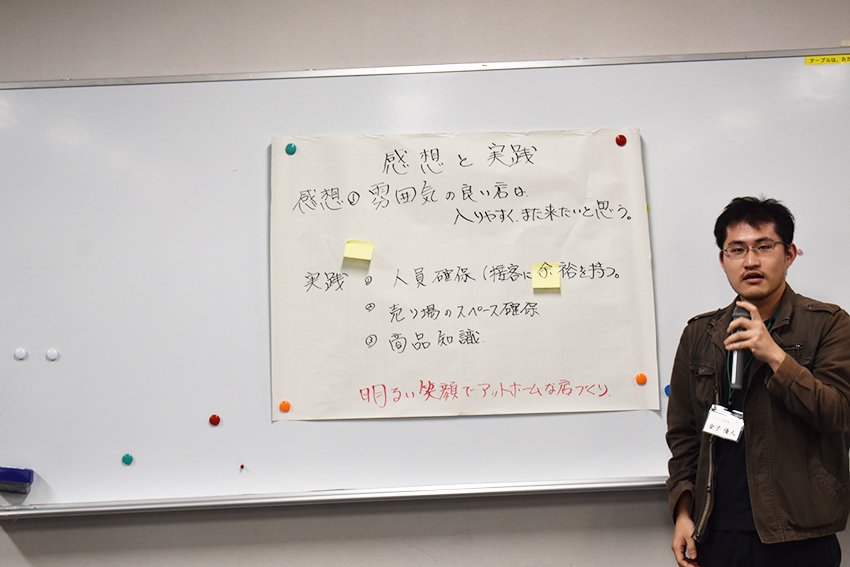 テーブルは、かた
感想と実践
感想① 雰囲気の良い店は、
入りやすく、また来たいと思う。
実践 ① 人員確保(接客に余裕を持つ。
② 売り場のスペース確保
③ 商品知識
明るい笑顔でアットホームな店づくり
金子 優人